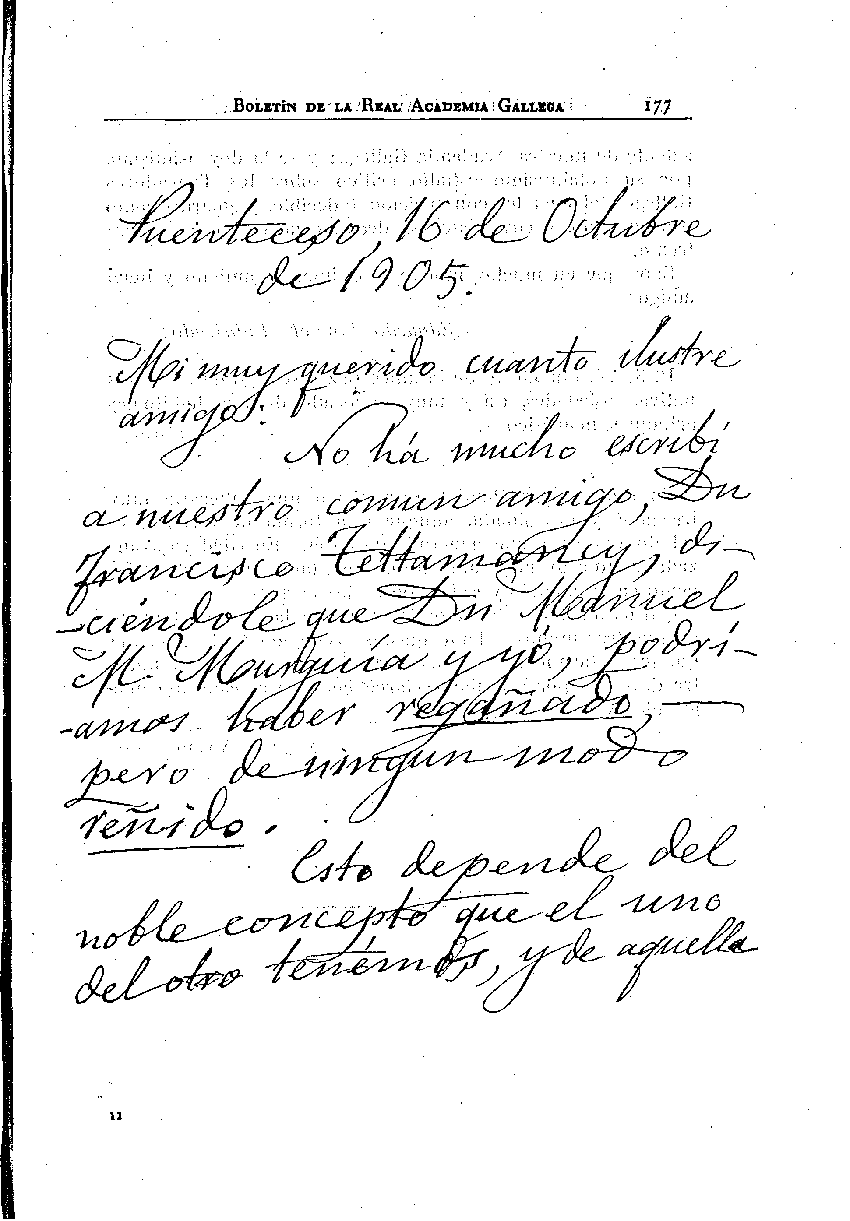 BOLETÍN DE LA REAL ACADEMIA GALLEGA 177
Puenteceso, 16 de Octubre
de 1905.
Mi muy querido cuanto ilustre
amigo:
No há mucho escribí
a nuestro comun amigo, Dn
Francisco Tettamancy, di-
-ciéndole que Dn Manuel
M. Murguía y yó, podrí-
-amos haber regañado, —
pero de ningun modo
reñido.
Esto depende del
noble concepto que el uno
del otro tenémos, y de aquella
11